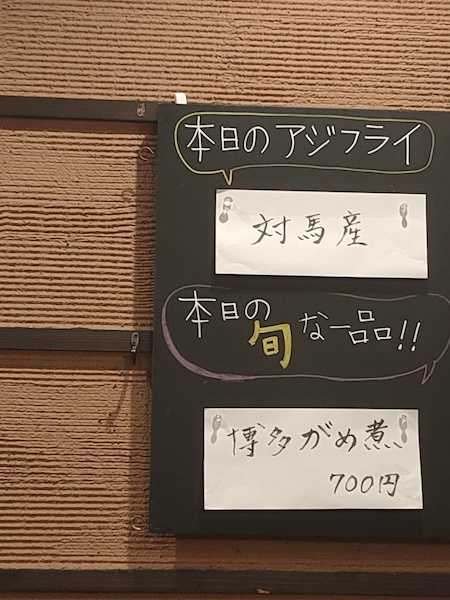 本日のアジフライ
対馬産
本日の旬な一品!!
博多がめ煮
700円